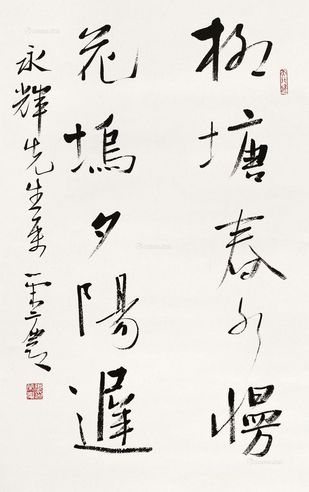 柳塘春水慢
花塢夕陽遲
永輝先生属